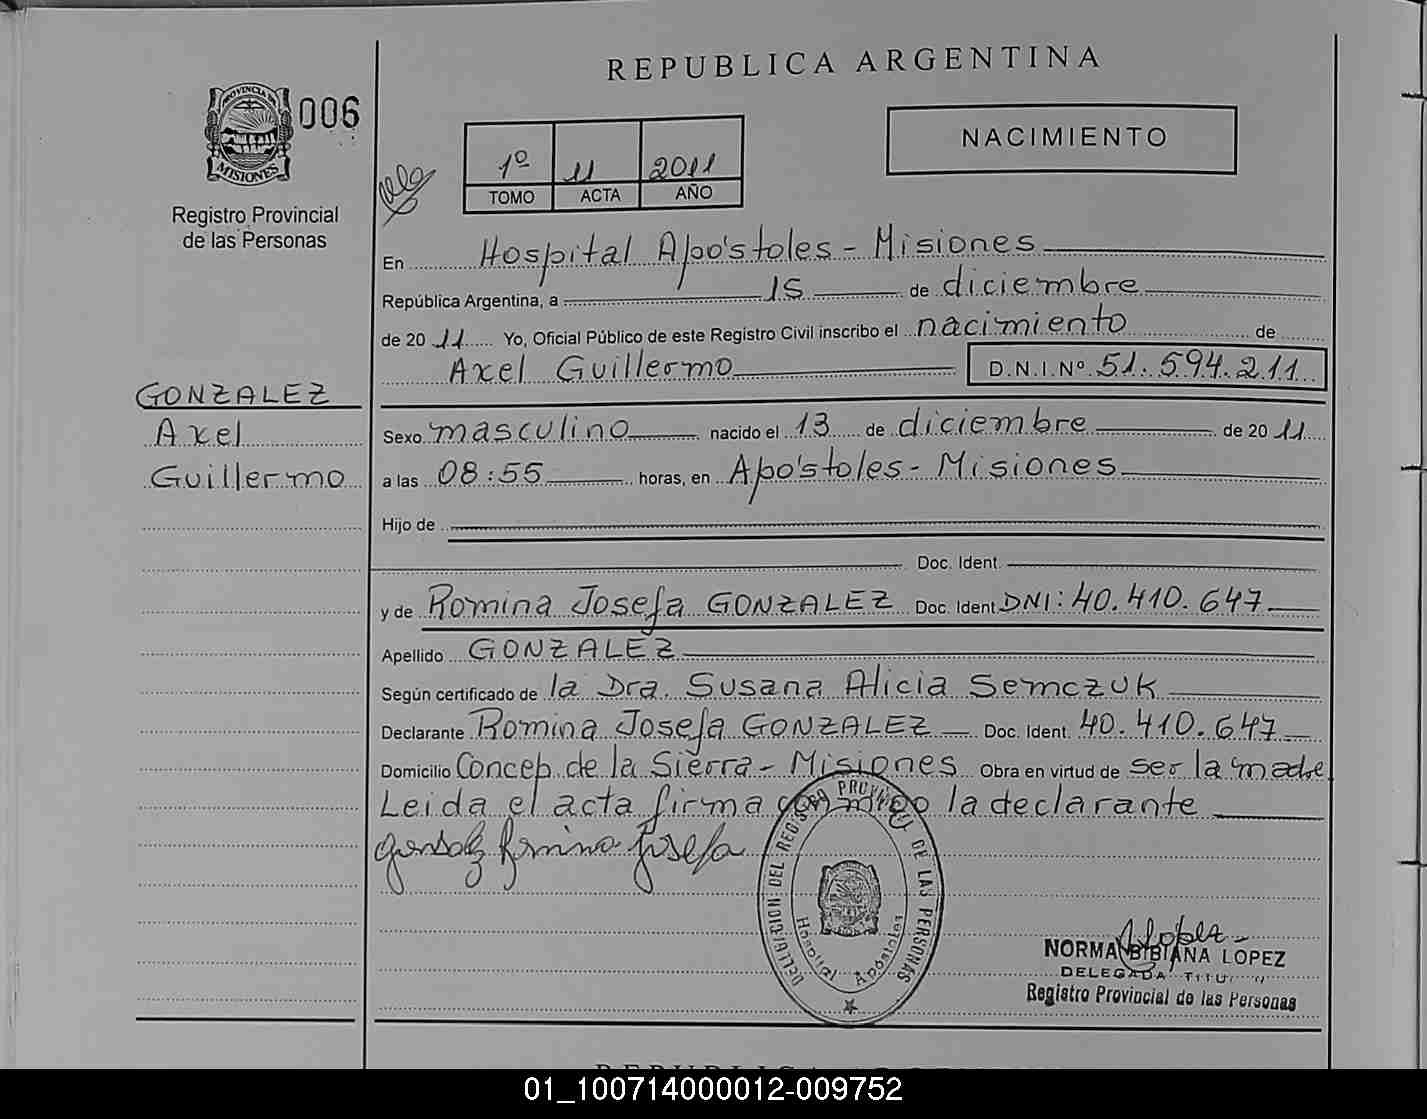 REPUBLICA ARGENTINA
PROVINCIA DE
MISIONES
006
Registro Provincial
de las Personas
NACIMIENTO
1º 11 2011
TOMO ACTA AÑO
En Hospital Apóstoles - Misiones
República Argentina, a 15 de diciembre
de 20 11 Yo, Oficial Público de este Registro Civil inscribo el nacimiento de
Axel Guillermo D.N.I.Nº 51.594.211
GONZALEZ
Axel
Guillermo
Sexo masculino nacido el 13 de diciembre de 20 11
a las 08:55 horas, en Apóstoles - Misiones
Hijo de
Doc. Ident.
y de Romina Josefa GONZALEZ Doc. Ident DNI: 40.410.647
Apellido GONZALEZ
Según certificado de la Dra. Susana Alicia Semczuk
Declarante Romina Josefa GONZALEZ Doc. Ident. 40.410.647
Domicilio Concep. de la Sierra - Misiones Obra en virtud de ser la madre
Leida el acta firma conmigo la declarante
Gonzalez Romina Josefa
DELEGACION DEL REGISTRO PROVINCIAL DE LAS PERSONAS
Hospital Apóstoles
NORMA BIBIANA LOPEZ
DELEGADA
Registro Provincial de las Personas
01_100714000012-009752